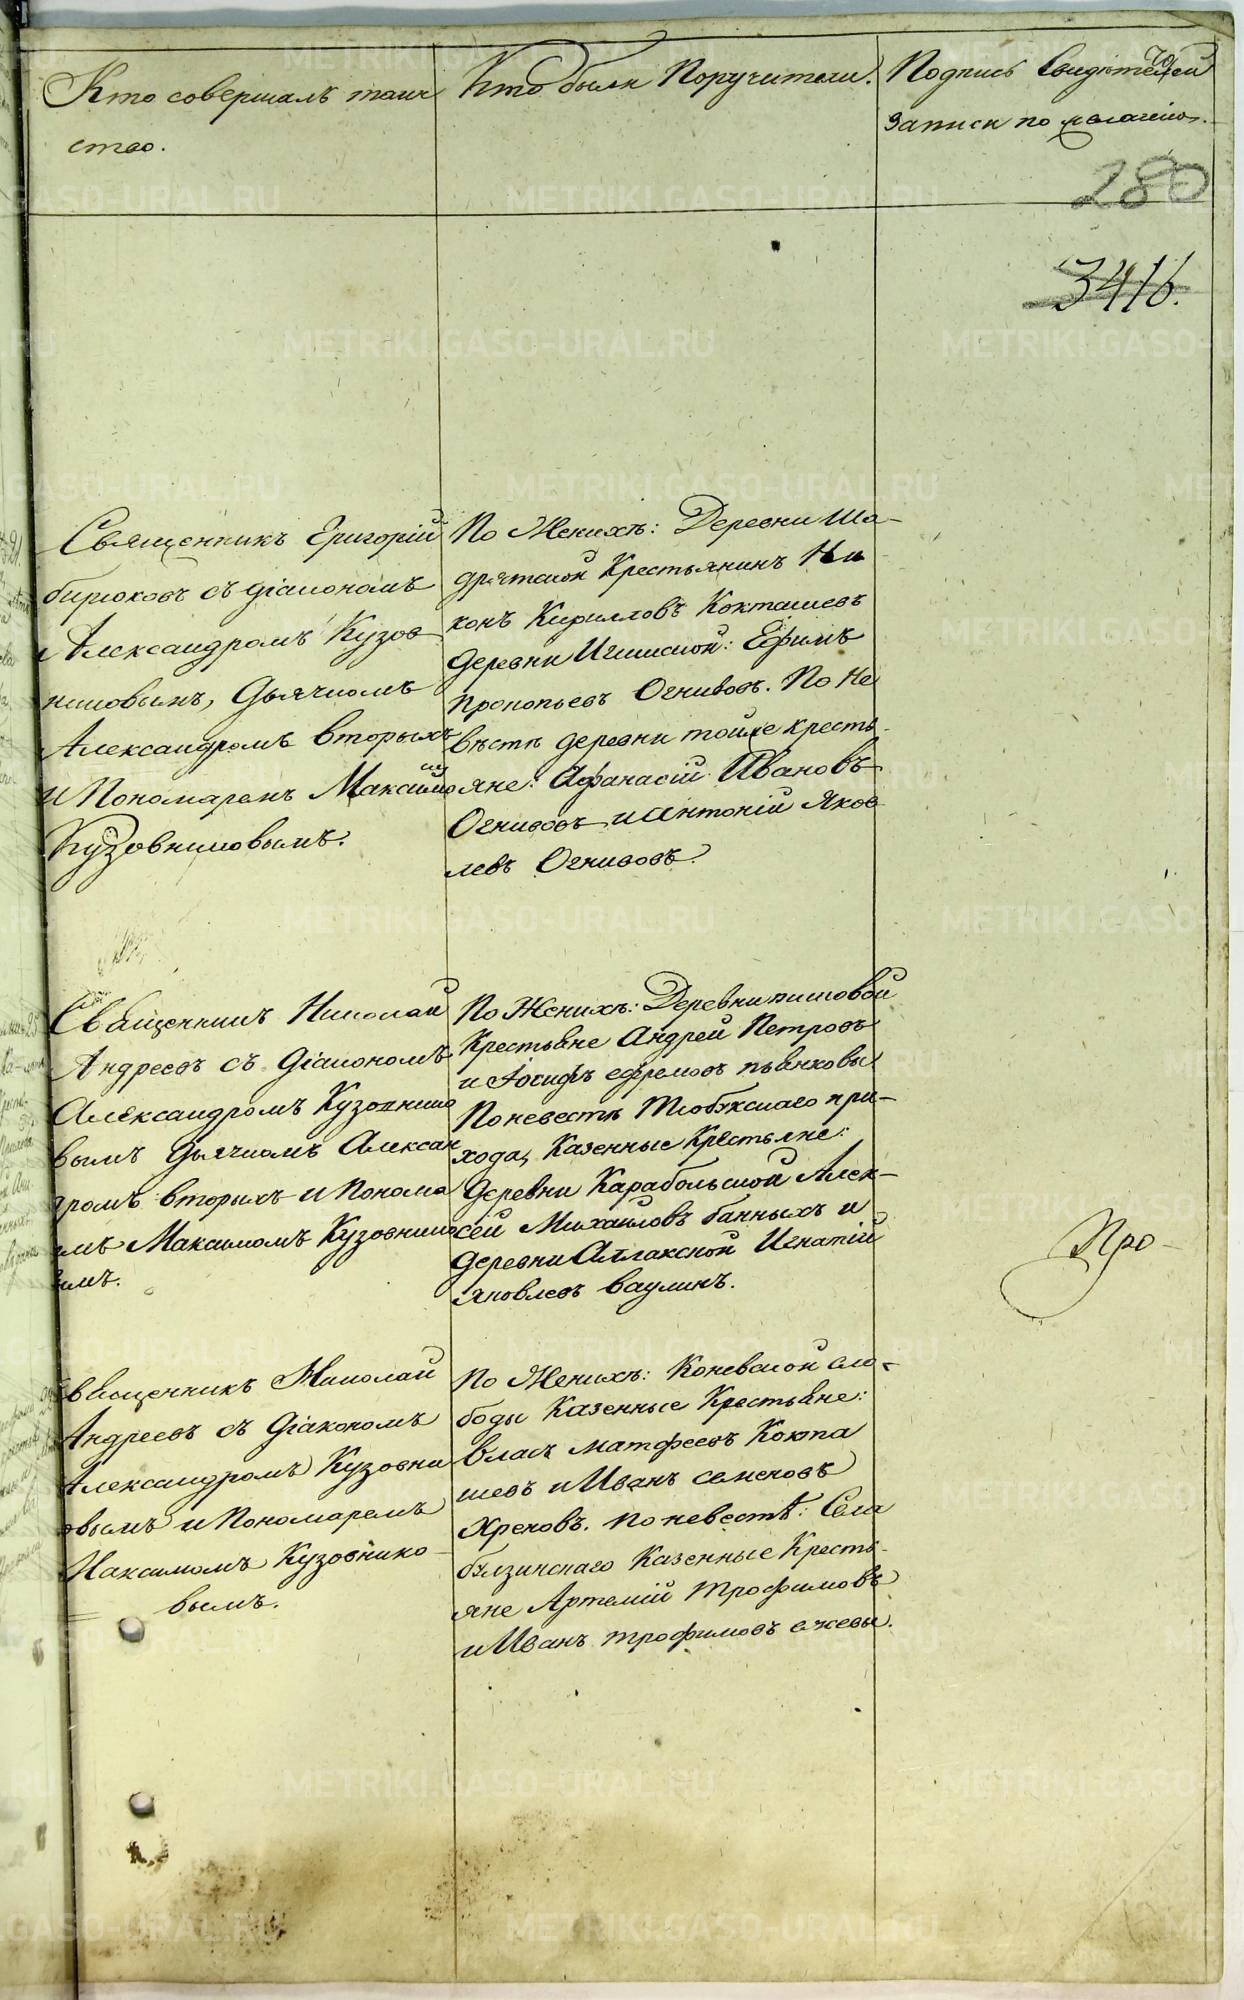 Кто совершалъ таин
ство.
Кто были Поручители.
Подпись Свидѣтелей
Записи по желанію.
280
3416.
Священникъ Григорій
бирюковъ съ діакономъ
Александромъ Кузов
никовымъ, Дьячкомъ
Александромъ вторыхъ
и Пономаремъ Максимо
Кузовниковымъ.
По Женихѣ: Деревни Ша-
дрятской Крестьянинъ Ни
конъ Кирилловъ Кокташевъ
деревни Игишской: Ефимъ
прокопьевъ Огнивовъ. По Не
вѣстѣ деревни тойже кресть-
яне: Афанасій Ивановъ
Огнивовъ и Антоній Яков
левъ Огнивовъ.
Священникъ Николай
Андреевъ съ Діакономъ
Александромъ Кузовнико
вымъ Дьячкомъ Алексан
дромъ вторыхъ и Понома
емъ Максимомъ Кузовнико
вымъ.
По Женихѣ: Деревни
Крестьяне Андрей Петровъ
и Іосифъ ефремовъ пьянковы
По невестѣ при-
хода, Казенные Крестьяне:
Деревни Карабольской Алек-
сей Михайловъ банныхъ и
деревни Аллакской Игнатій
яковлевъ ваулинъ.
Про-
Священникъ Николай
Андреевъ съ Діакономъ
Александромъ Кузовни
овымъ и Пономаремъ
Максимомъ Кузовнико-
вымъ.
По Женихѣ: Коневской сло-
боды Казенные Крестьяне:
власъ матфеевъ Кокта
шевъ и Иванъ семеновъ
Хреновъ. по невестѣ: Села
Казенные Кресть-
яне Артемій трофимовъ
и Иванъ трофимовъ ежевы.
METRIKI.GASO-URAL.RU